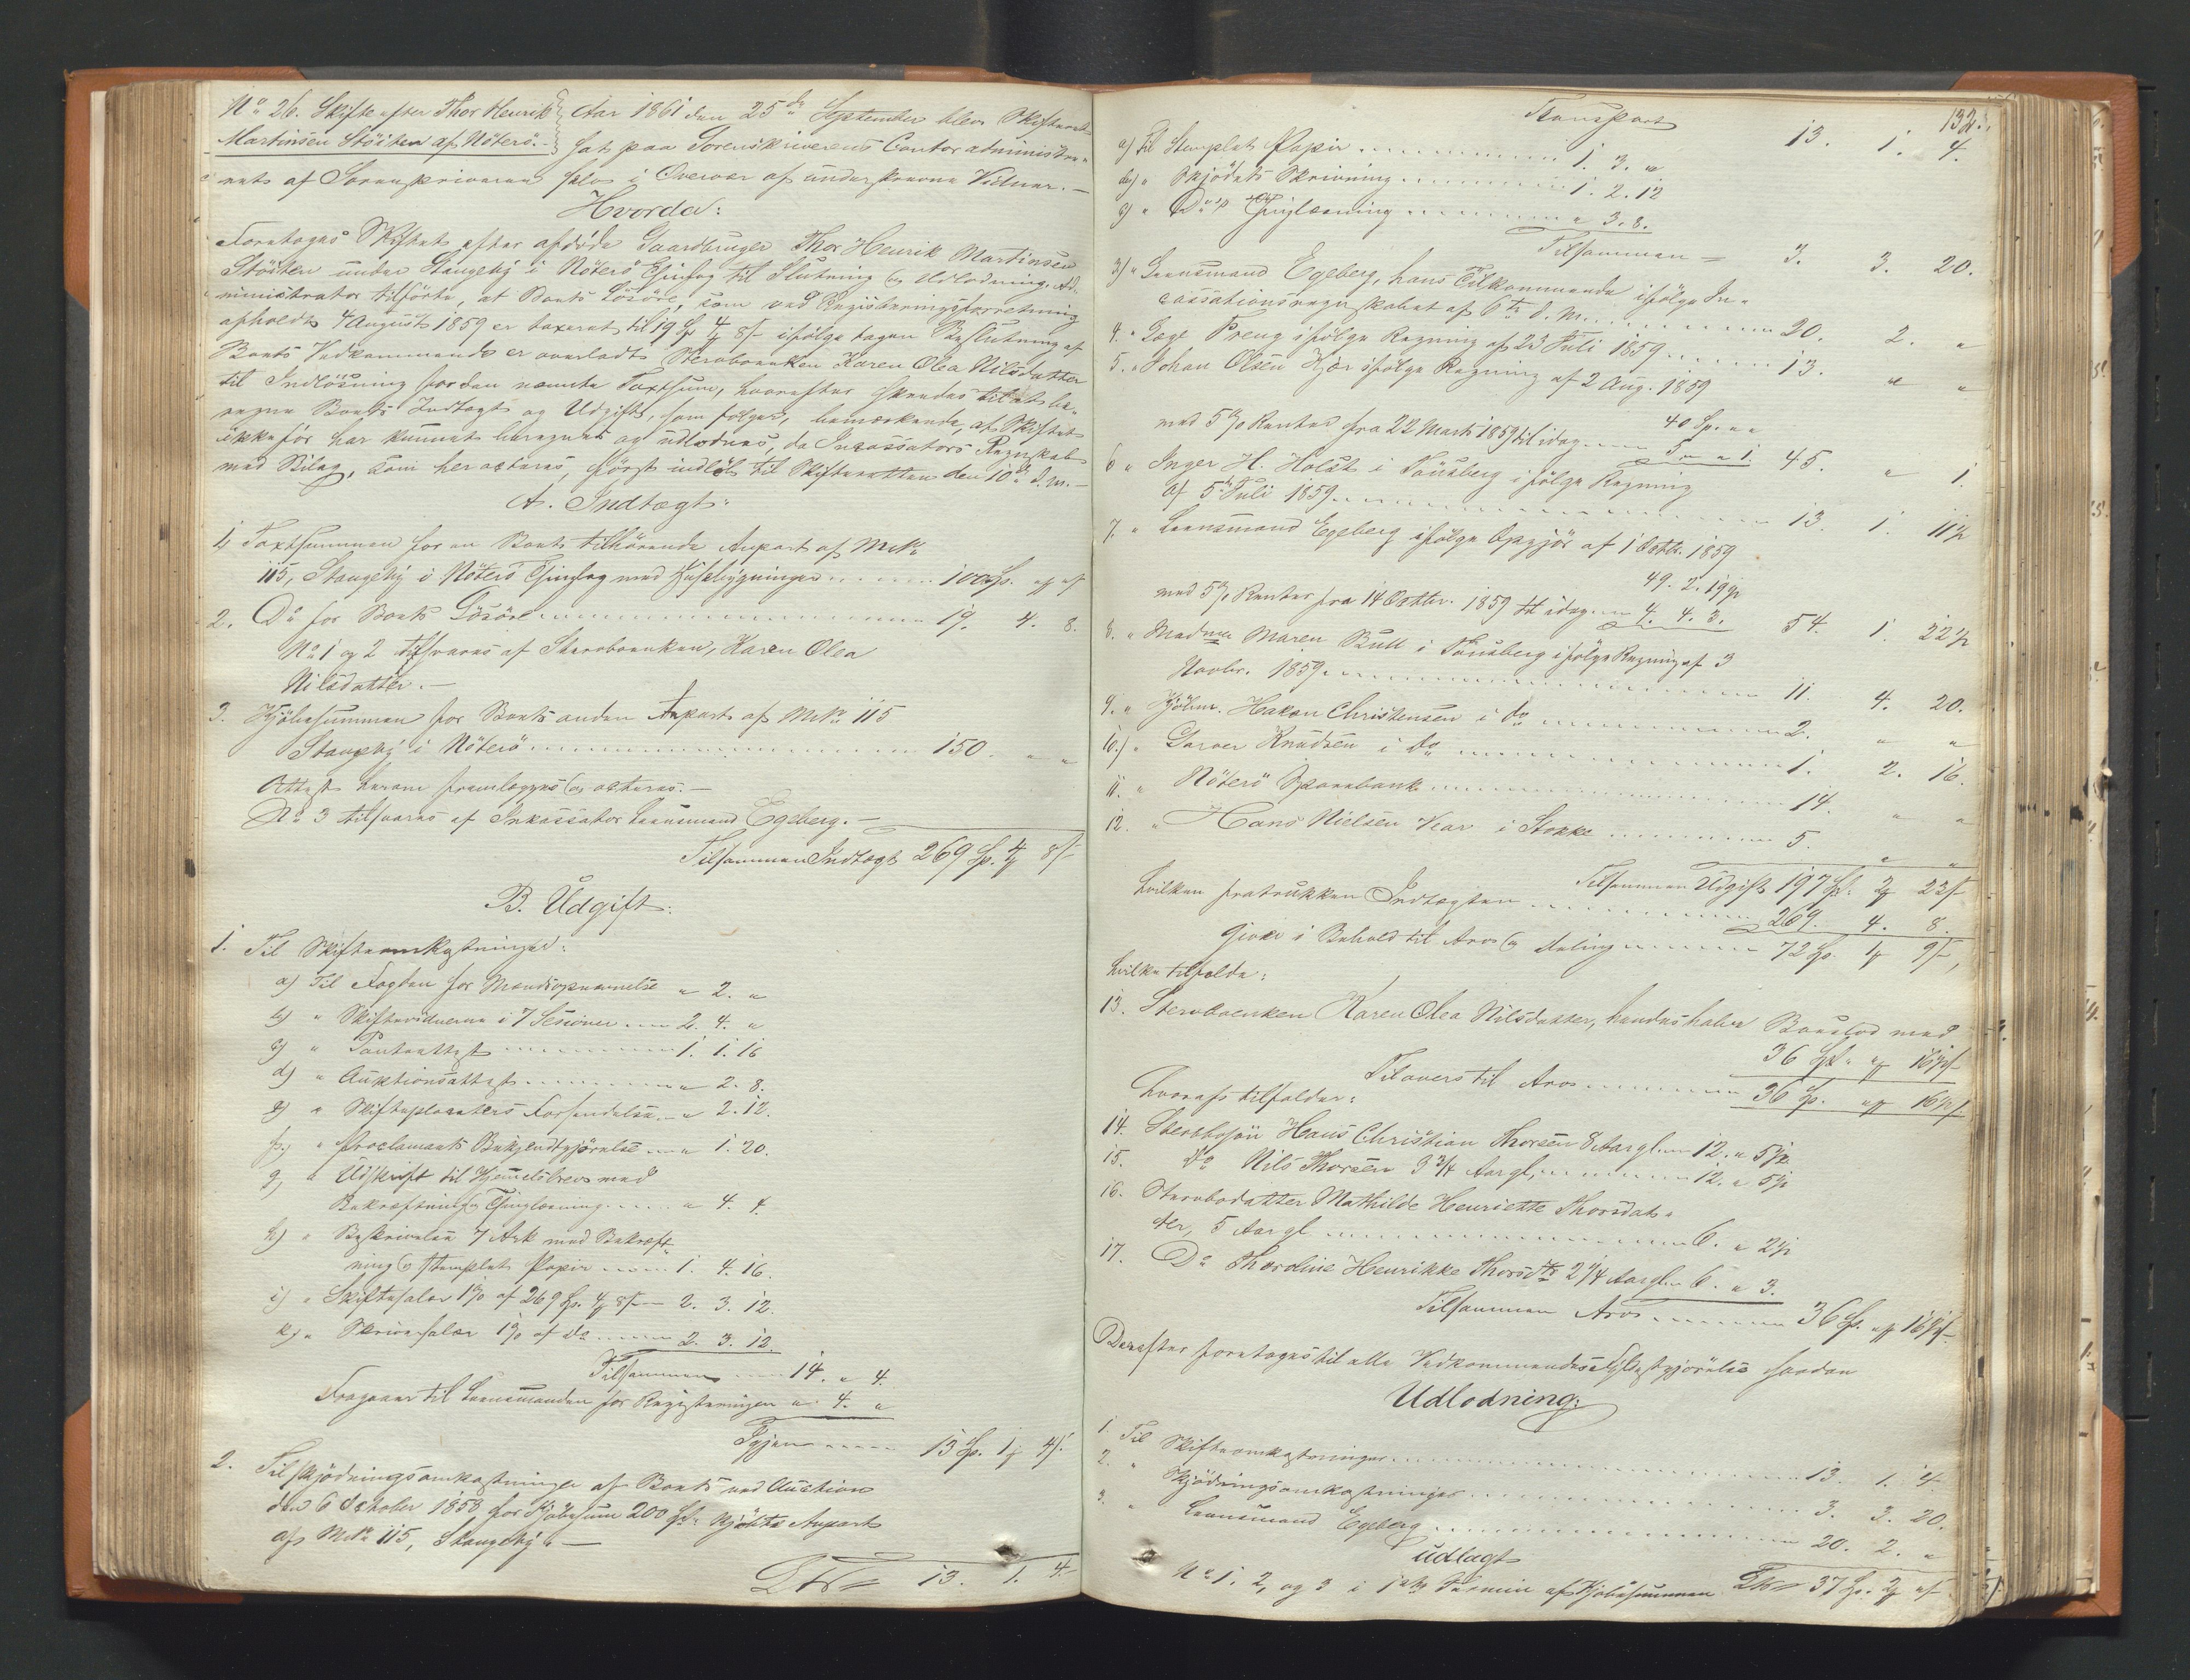 No 26. Skifte efter Thor Henrik
Martinsen Stöiten af Nöterö.-
Aar 1861 den 25de September blev Skifteret
sat paa Sorenskriverens Contor administre-
rets af Sorenskriveren selv i Overvær af underskrevne Vidner.-
Hvorda:
Foretoges Skiftet efter afdöde Gaardbruger Thor Henrik Martinsen
Stöiten under Stangeby i Nöterö Thinglag til Slutning og Udlodning. Ad-
ministrator tilförte, at Boets Lösöre, som ved Registreringsforretning
afholdt 4 August 1859 er taxeret til 19 Sp. 4 # 8 s ifölge tagen Beslutning af
Boets Vedkommende er overladt Sterboenken Karen Olea Nilsdatter
til Indlösning for den nævnte Taxtsum, hvorefter skredes til at be-
regne Boets Indtægt og Udgift, som fölger, bemærkende, at Skiftet
ikke för har kunnet beregnes og udloddes, da Incassators Regnskab
med Bilag, som her acteres, först indlöb til Skifteretten den 10de d. M.-
A. Indtægt:
1, Taxtsummen for en Boet tilhörende Anpart af MNo
115, Stangeby i Nöterö Thinglag med Husebygninger 100 Sp. " # " s
2. Do for Boets Lösöre 19. 4. 8.
No 1 og 2 tilsvares af Sterboenken, Karen Olea
Nilsdatter.-
3. Kjöbesummen for Boets anden Anpart af MNo 115
Stangeby i Nöterö 150 " "
Attest herom fremlægges og acteres.-
No 3 tilsvares af Inkassator Lensmand Egeberg.-
Tilsammen Indtægt 269 Sp. 4 # 8 s
B. Udgift:
1. Til Skifteomkostninger:
a) Til Fogden for Mændsopnævnelse " 2. "
b) " Skiftevidnerne i 7 Sesioner 2. 4. "
c) " Panteattest 1. 1. 16
d) " Auktionsattest " 2. 8.
e) " Skifteplacaters Forsendelse " 2. 12.
f.) " Proclamaets Bekjendtgjörelse " 1. 20.
g, " Udskrift til Hjemmelsbrev med
Bekræftning og Thinglæsning " 4. 4.
h) " Beskrivelse 7 Ark med Bekræft
ning og stemplet Papir 1. 4. 16.
i) " Skiftesalær 1% af 269 Sp. 4 # 8 s 2. 3. 12.
k) " Skriversalær 1% af do 2. 3. 12.
Tilsammen 14. " 4.
Fragaaer til Lensmanden for Registreringen " 4. "
Igjen 13 Sp. 1 # 4 s
2. Til Skjödningsomkostninger af Boets ved Auction
den 6 Oktober 1858 for Kjöbesum 200 Sp. kjöbte Anpart
af MNo 115, Stangeby.-
Lts 13. 1. 4
132.
Transport 13. 1. 4.
a) Til Stemplet Papir 1. 3. "
b) " Skjödets Skrivning 1. 2. 12
c) " Dos Thinglæsning " 3. 8.
Tilsammen = 3. 3. 20.
3) " Lensmand Egeberg, hans Tilkommende ifölge In-
cassationsregnskabet af 6te d. M. 20. 2. "
4. " Læge Preus ifölge Regning af 23 Juli 1859 13. " "
5. " Johan Olsen Kjær ifölge Regning af 2 Aug. 1859
40 Sp. " "
med 5% Renter fra 22 Marts 1859 til idag 5 " " 1. 45. " 1.
6 " Inger H. Holst i Tönsberg ifölge Regning
af 5 Juli 1859 13. 1. 11½
7. " Lensmand Egeberg ifölge Opgjör af 1 Octbr. 1859
49. 2. 19½
med 5% Renter fra 14 Octbr. 1859 til idag 4. 4. 3. 54. 1. 22½
8. " Madme Maren Bull i Tönsberg ifölge Regning af 3
Novbr. 1859 11. 4. 20.
9. " Kjöbm. Hakon Christensen i do 2. " "
10.) " Garver Knudsen i do 1. 2. 16.
11. " Nöterö Sparebank 14. " "
12. " Hans Nielsen Vear i Stokke 5. " "
Tilsammen Udgift 197 Sp. 2 # 23 s
hvilken fratrukken Indtægten 269. 4. 8.
Giver i Behold til Arv og Deling 72 Sp. 1 # 9 s,
hvilke tilfalde:
13. Sterboenken Karen Olea Nilsdatter, hendes halve Boeslod med
36 Sp. " # 16½ s
Tilovers til Arv 36 Sp. " # 16½ s
hvoraf tilfalder:
14. Sterbosön Hans Christian Thorsen 8 Aar gl. 12. " 5½
15. do Nils Thorsen 3¾ Aar gl. 12. " 5½
16. Sterbodatter Mathilde Henriette Thorsdat-
ter, 5 Aar gl 6. " 2½
17. Do Thordine Henrikke Thorsdtr 2¼ Aar gl. 6. " 3.
Tilsammen Arv 36 Sp. " # 16½ s
Derefter foretoges til alle Vedkommendes Fyldestgjörelse saadan
Udlodning:
1. Til Skifteomkostninger 13. 1. 4.
2. " Skjödningsomkostninger 3. 3. 20.
3. " Lensmand Egeberg 20. 2. "
udlagt
No 1. 2, og 3 i 1ste Termin af Kjöbesummen Lts 37 Sp. 2 # " s